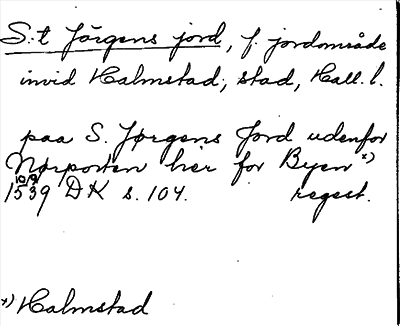 S:t Jörgens jord, f. jordområde
invid Halmstad, stad, Hall. l.
paa S. Jørgens Jord udenfor
Nørporten her for Byen x)
10/9
1539 DK s. 104. regest.
x) Halmstad